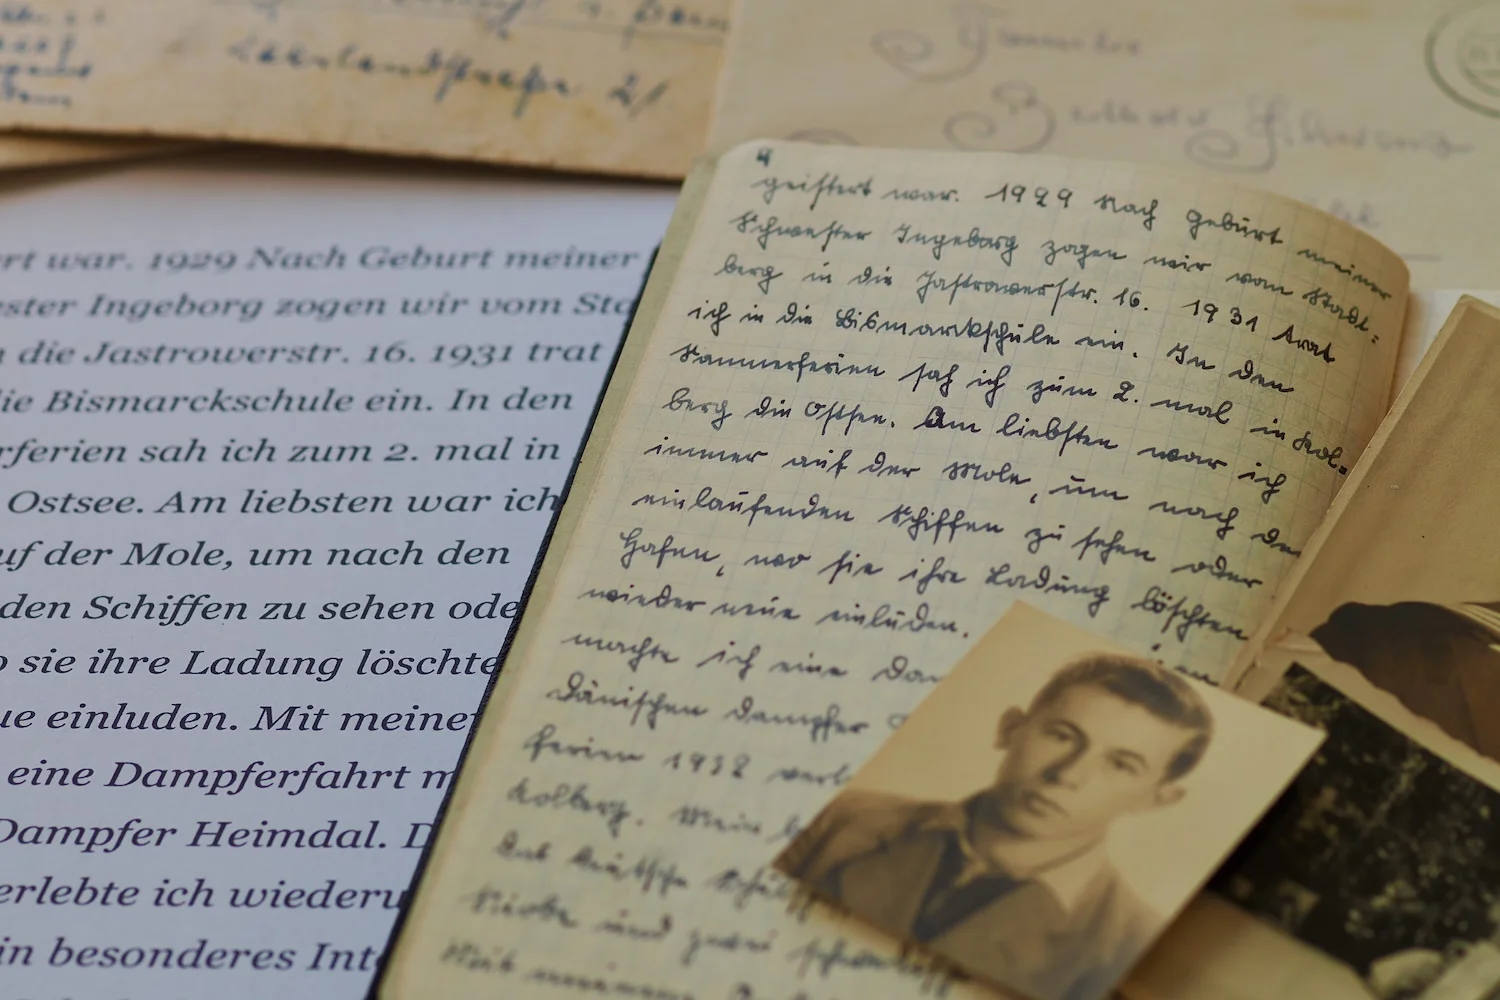 Seenlandstraße 21
rt war. 1929 Nach Geburt meiner
ester Ingeborg zogen wir vom Sta
n die Jastrowerstr. 16. 1931 trat
ie Bismarckschule ein. In den
rferien sah ich zum 2. mal in
Ostsee. Am liebsten war ich
uf der Mole, um nach den
den Schiffen zu sehen ode
o sie ihre Ladung löschte
ue einluden. Mit meiner
eine Dampferfahrt m
Dampfer Heimdal. D
erlebte ich wiederu
in besonderes Inte
4
geistert war. 1929 Nach Geburt meiner
Schwester Ingeborg zogen wir vom Stadt-
berg in die Jastrowerstr. 16. 1931 trat
ich in die Bismarkschule ein. In den
Sommerferien sah ich zum 2. mal in Kol-
berg die Ostsee. Am liebsten war ich
immer auf der Mole, um nach den
einlaufenden Schiffen zu sehen oder
Hafen, wo sie ihre Ladung löschten
wieder neue einluden.
machte ich eine Dam
Dänischen Dampfer
ferien 1932 verl
Kolberg. Mein b
das deutsche Schulsch
Niobe und zwei schwedisch
Mit meinem